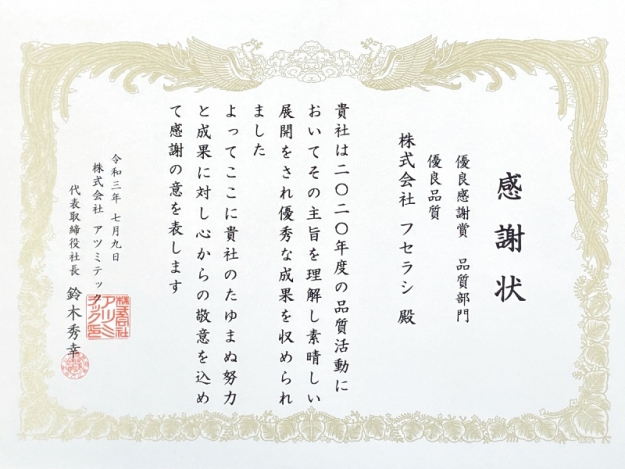 感謝状
優良感謝賞 品質部門
優良品質
株式会社 フセラシ 殿
貴社は二〇二〇年度の品質活動に
おいてその主旨を理解し素晴しい
展開をされ優秀な成果を収められ
ました
よってここに貴社のたゆまぬ努力
と成果に対し心からの敬意を込め
て感謝の意を表します
令和三年 七月九日
株式会社 アツミテック
代表取締役社長 鈴木秀幸
株式会社
アツミ
テック